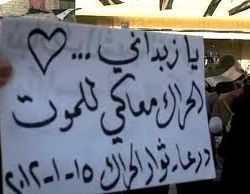 يا زبداني ... ♡
الحراك معاكي للموت
درعا - ثوار الحراك ١٥-١-٢٠١٢